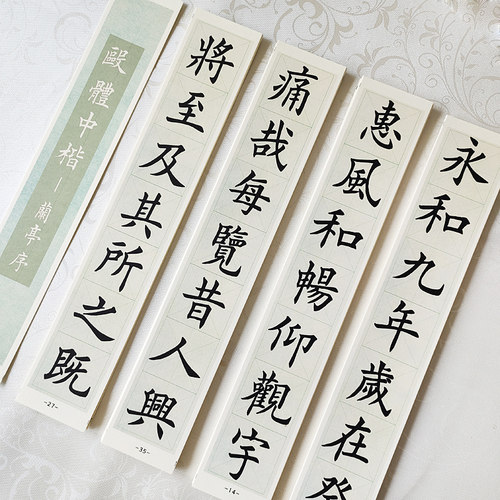 永和九年歲在癸
惠風和暢仰觀宇
-14-
痛哉每覽昔人興
-35-
將至及其所之既
-27-
毆體中楷—蘭亭序